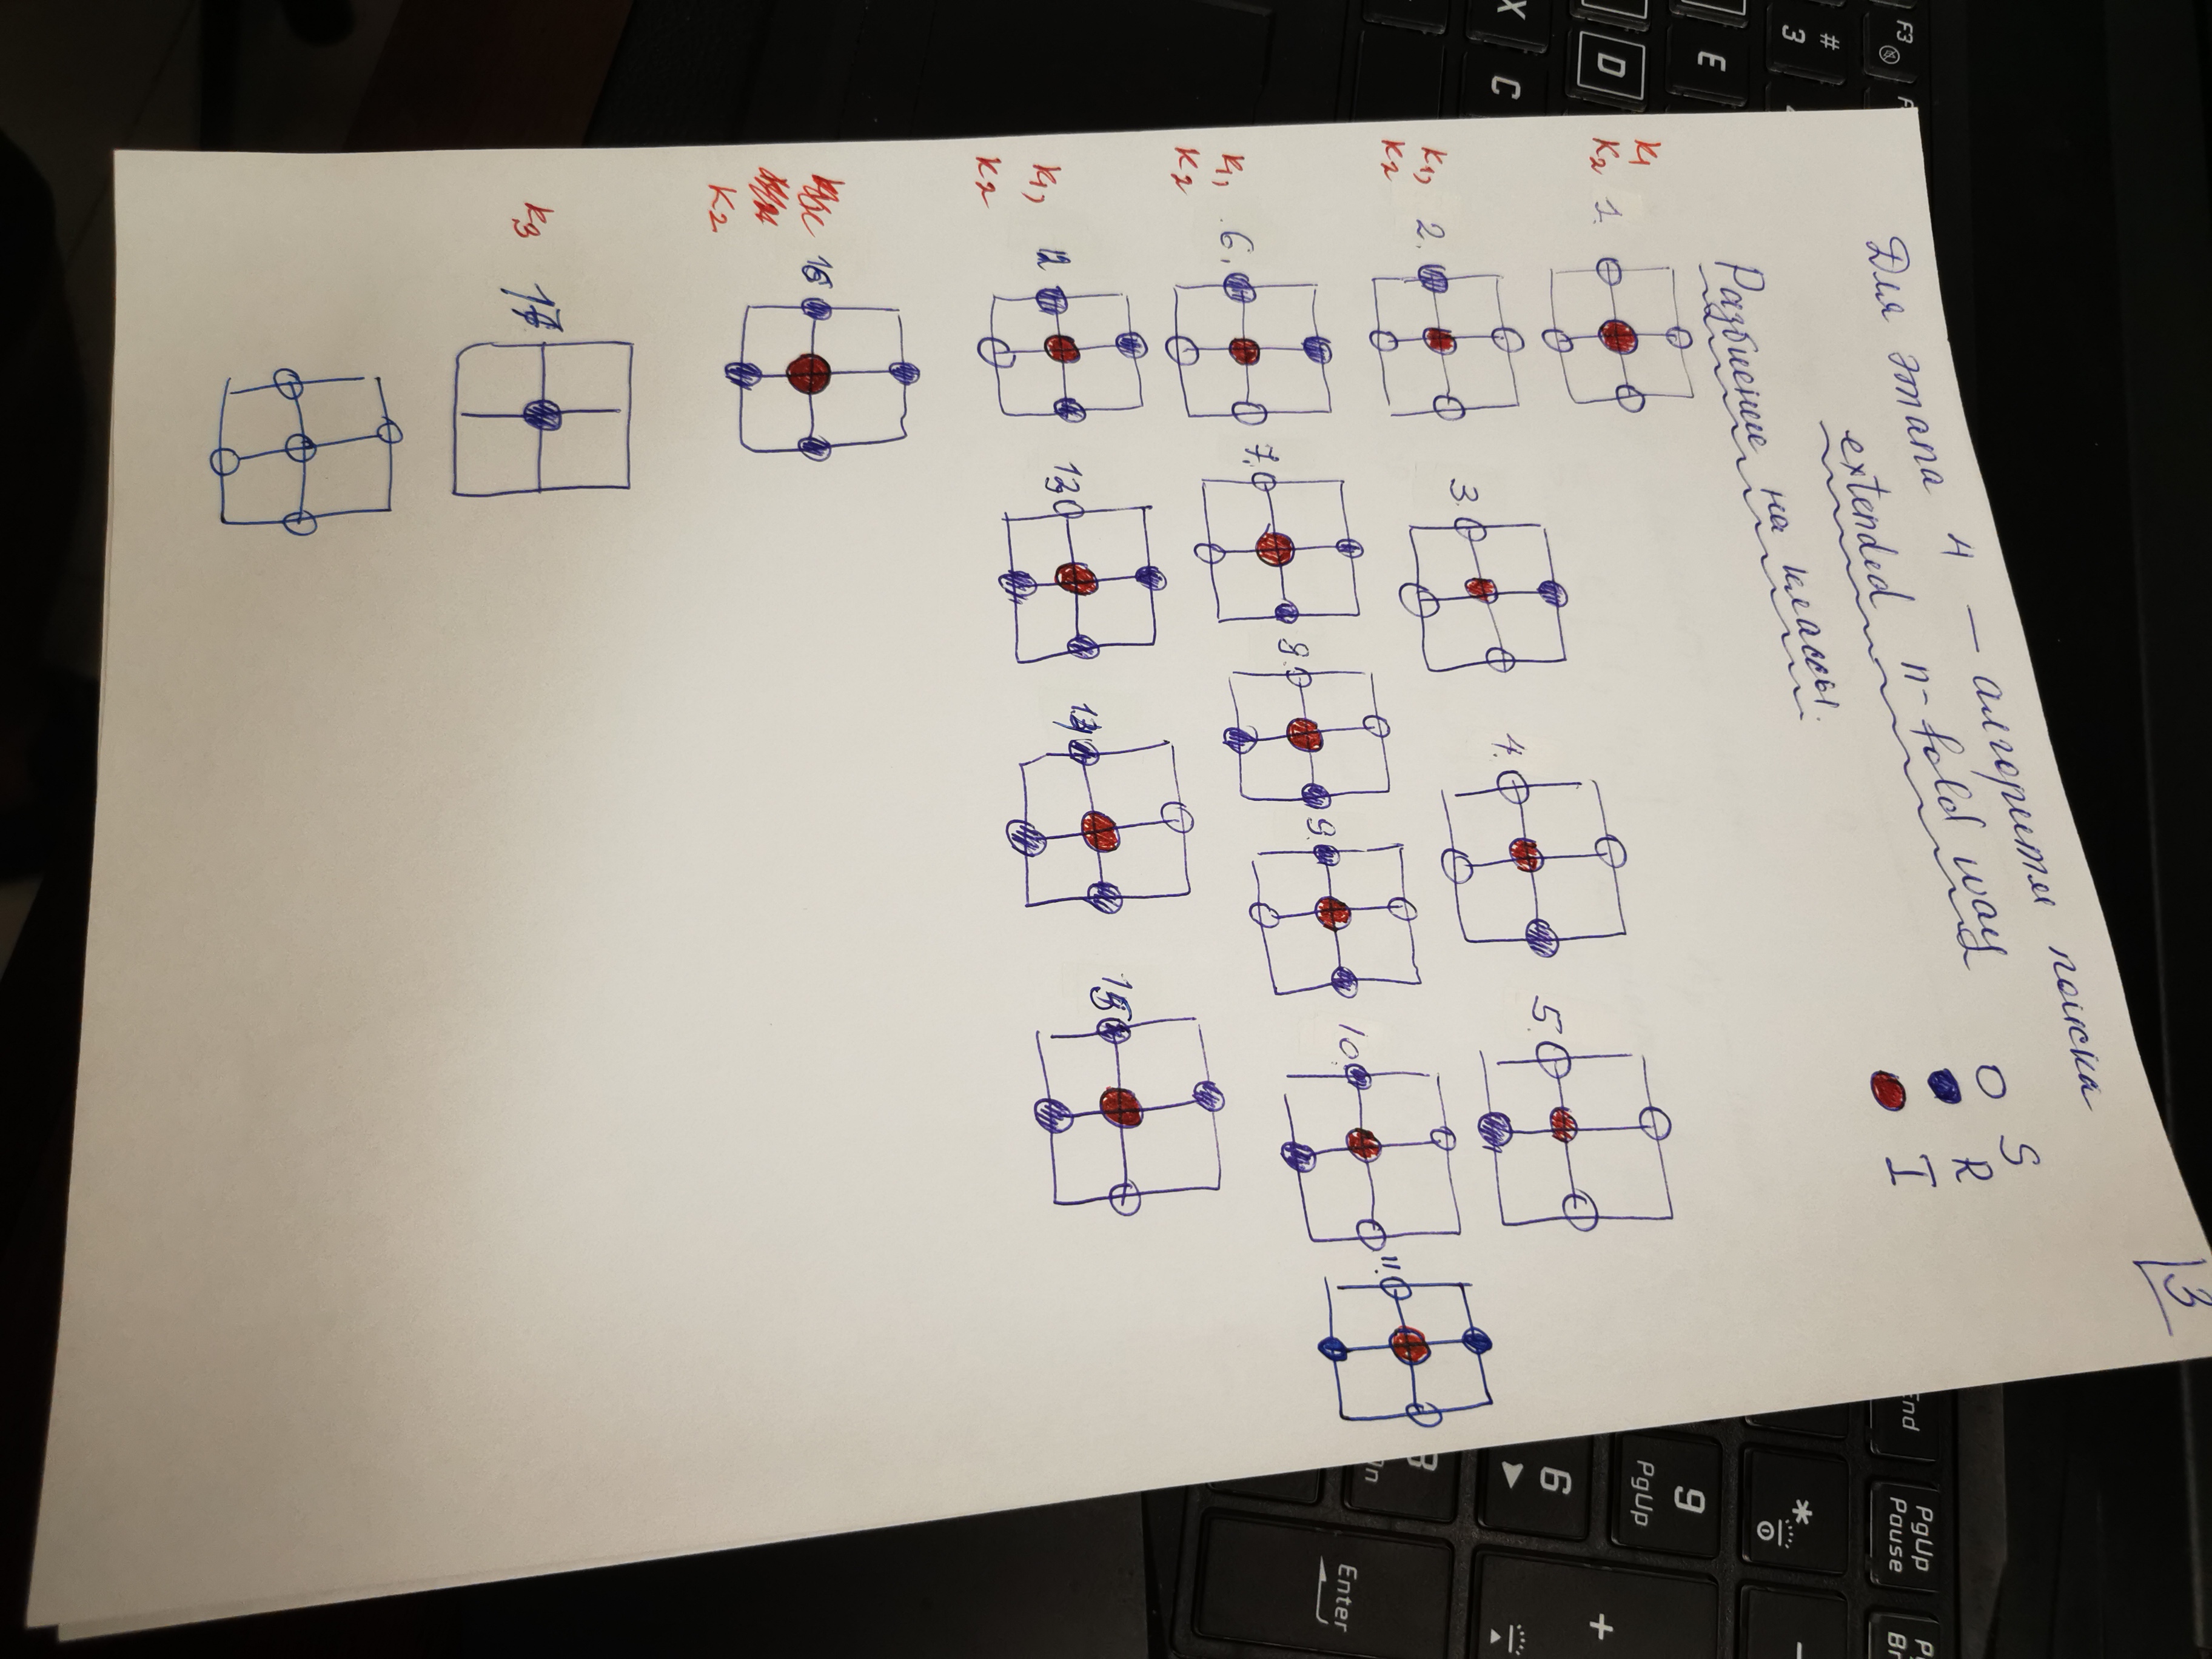 3
Для этапа 4 — алгоритм поиска
extended n-fold way
S
R
I
Разбиение на классы.
K1
K2 1.
K1, 2. 3. 4. 5.
K2
K1, 6. 7. 8. 9. 10. 11.
K2
K1, 12 13 14 15
K2
16
K2
K3 17
F3
#
3
E
D
X
C
End
PgUp
Pause
*
-
9
PgUp
+
6
3
Enter